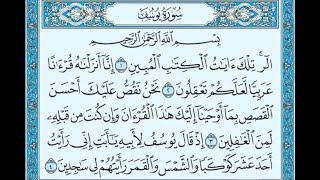 سُورَةُ يُوسُفَ
بِسْمِ اللَّهِ الرَّحْمَٰنِ الرَّحِيمِ
الٓر ۚ تِلْكَ ءَايَٰتُ ٱلْكِتَٰبِ ٱلْمُبِينِ ١ إِنَّآ أَنزَلْنَٰهُ قُرْءَٰنًا
عَرَبِيًّا لَّعَلَّكُمْ تَعْقِلُونَ ٢ نَحْنُ نَقُصُّ عَلَيْكَ أَحْسَنَ
ٱلْقَصَصِ بِمَآ أَوْحَيْنَآ إِلَيْكَ هَٰذَا ٱلْقُرْءَانَ وَإِن كُنتَ مِن قَبْلِهِۦ
لَمِنَ ٱلْغَٰفِلِينَ ٣ إِذْ قَالَ يُوسُفُ لِأَبِيهِ يَٰٓأَبَتِ إِنِّى رَأَيْتُ
أَحَدَ عَشَرَ كَوْكَبًا وَٱلشَّمْسَ وَٱلْقَمَرَ رَأَيْتُهُمْ لِى سَٰجِدِينَ ٤